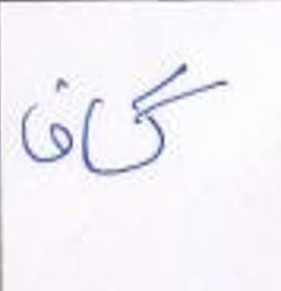 گاف